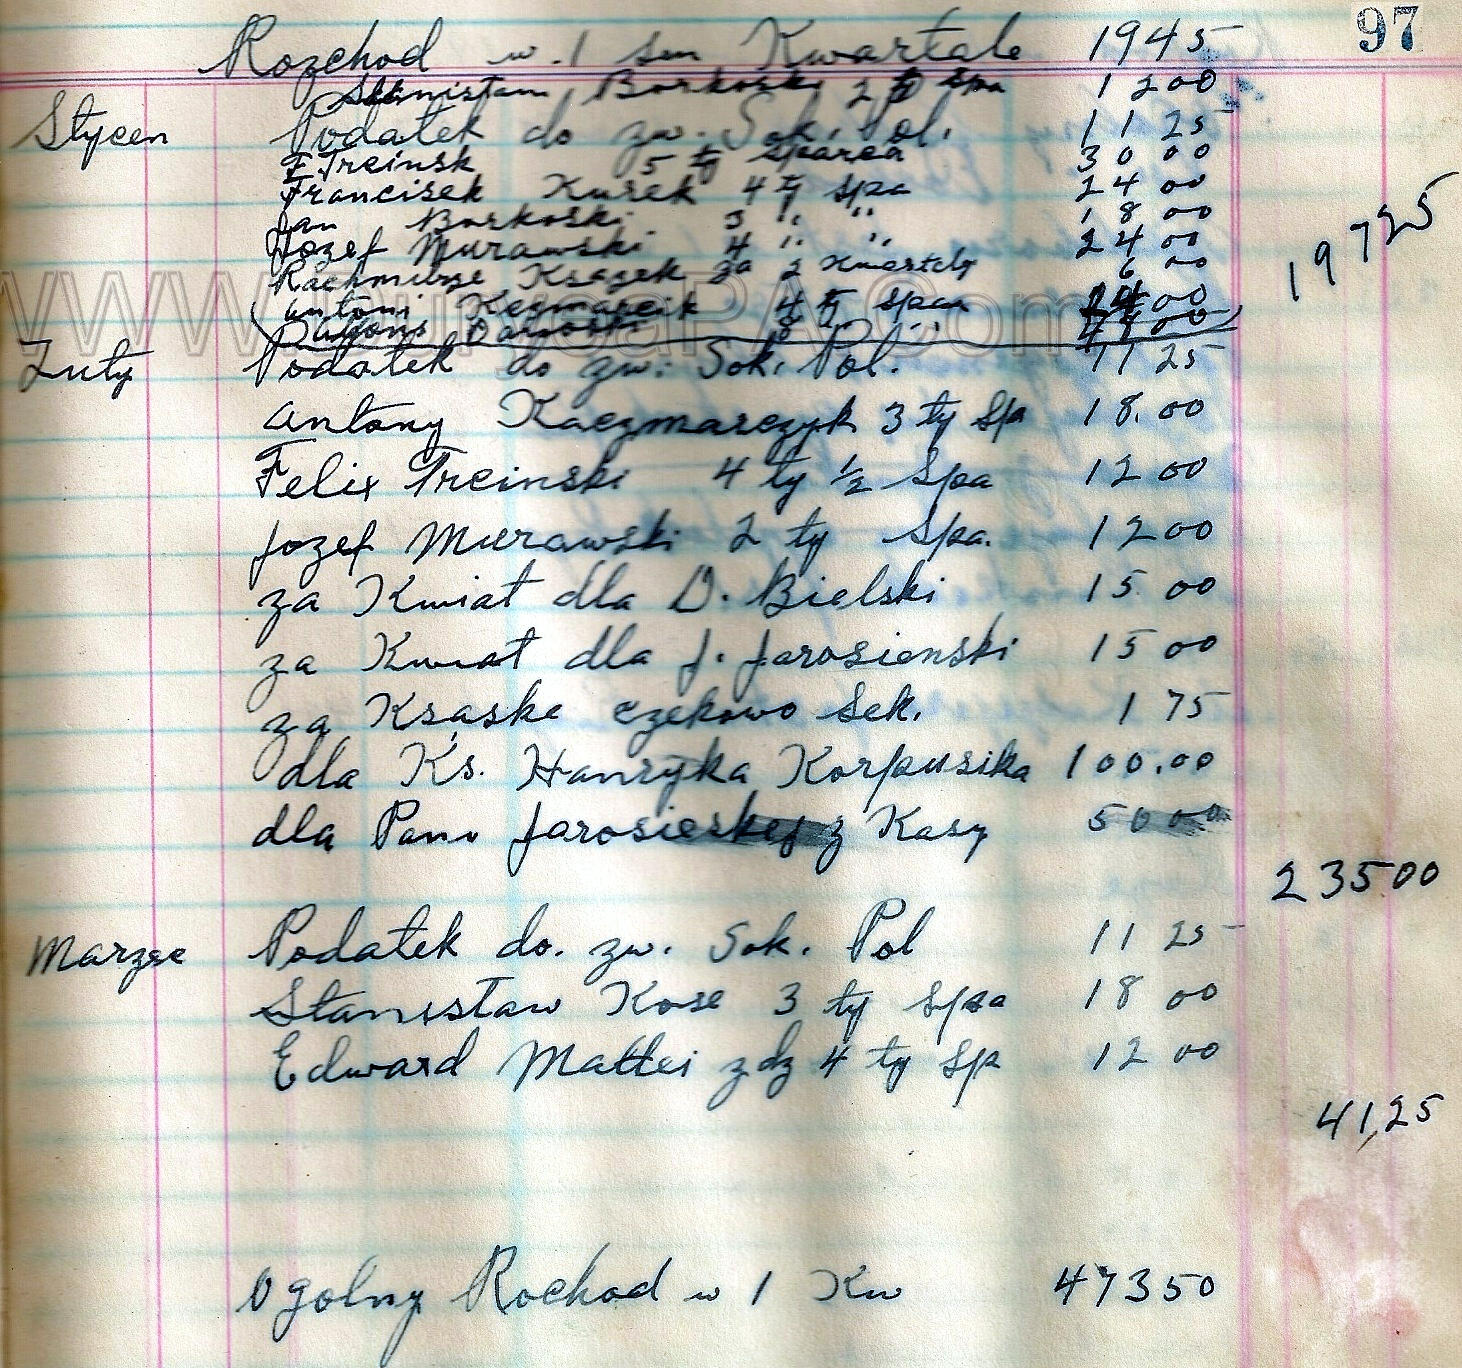 97
Rozchod w. 1 sen Kwartale 1945
Stanistaw Borkoski 2 ty Spa 12 00
Stycen Podatek do zw. Sok. Pol. 11 25
F Trcinsk 5 ty Sparca 30 00
Francisek Kurek 4 ty Spa 24 00
Jan Borkoski 3 " " 18 00
Jozef Murawski 4 " " 24 00
Ksazek za 2 Kwartaly 6 00
Antoni 4 ty Spar 24 00
197 25
Luty Podatek do zw. Sok. Pol. 11 25
Antony Kaczmarczyk 3 ty Spa 18.00
Felix Trcinski 4 ty 1/2 Spa 12 00
Jozef Murawski 2 ty Spa. 12 00
za Kwiat dla D. Bielski 15 00
za Kwiat dla J. Jarosienski 15 00
za Ksąske czekowo Sek. 1 75
dla Ks. Hanryka Korpusika 100.00
dla Panu z Kasy 50 00
235 00
Marzec Podatek do. zw. Sok. Pol 11 25
Stanistaw Kose 3 ty Spa 18 00
Edward Mattei zdz 4 ty Sp 12 00
41,25
Ogolny Rochod w 1 Kw 473 50